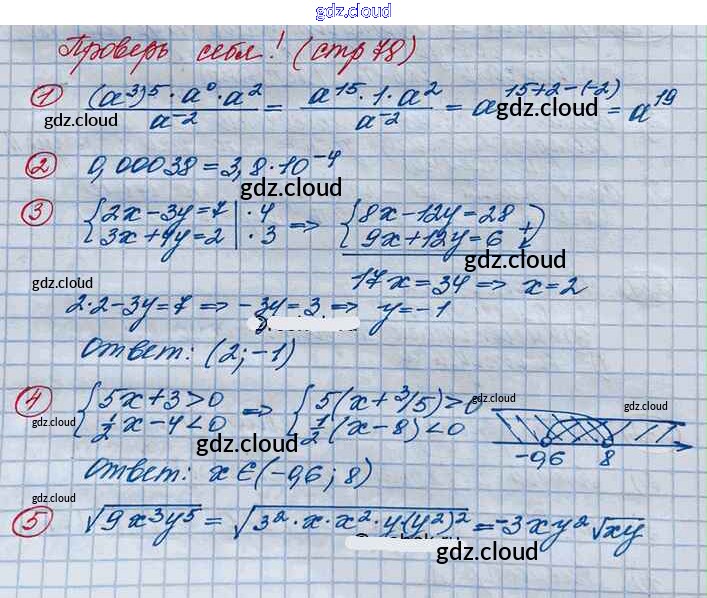 gdz.cloud
Проверь себя! (стр 78)
① (a³)⁵ · a⁰ · a² / a⁻² = a¹⁵ · 1 · a² / a⁻² = a¹⁵⁺²⁻⁽⁻²⁾ = a¹⁹
gdz.cloud gdz.cloud gdz.cloud
② 0,00038 = 3,8 · 10⁻⁴
gdz.cloud
③ { 2x − 3y = 7 | · 4 => { 8x − 12y = 28
3x + 4y = 2 | · 3 9x + 12y = 6 +
gdz.cloud
17x = 34 => x = 2
gdz.cloud
2·2 − 3y = 7 => −3y = 3 => y = −1
Ответ: (2; −1)
④ { 5x + 3 > 0 => { 5(x + 3/5) > 0
gdz.cloud gdz.cloud
½x − 4 < 0 ½(x − 8) < 0
gdz.cloud
−0,6 8
Ответ: x ∈ (−0,6; 8)
gdz.cloud
⑤ √9x³y⁵ = √3² · x · x² · y · (y²)² = −3xy²√xy
gdz.cloud